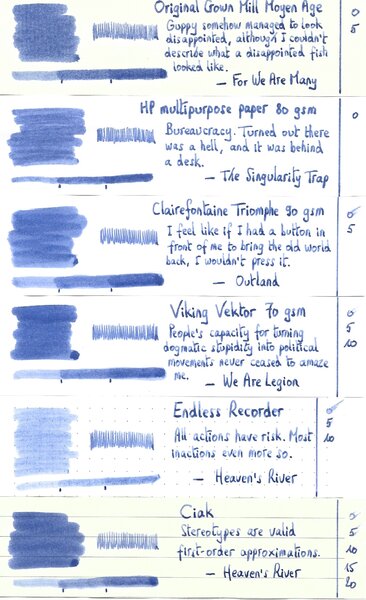 Original Crown Mill Moyen Age
Guppy somehow managed to look
disappointed, although I couldn't
describe what a disappointed fish
looked like.
— For We Are Many
0
5
HP multipurpose paper 80 gsm
Bureaucracy. Turned out there
was a hell, and it was behind
a desk.
— The Singularity Trap
0
Clairefontaine Triomphe 90 gsm
I feel like if I had a button in
front of me to bring the old world
back, I wouldn't press it.
— Outland
0
5
Viking Vektor 70 gsm
People's capacity for turning
dogmatic stupidity into political
movements never ceased to amaze
me.
— We Are Legion
0
5
10
Endless Recorder
All actions have risk. Most
inactions even more so.
— Heaven's River
0
5
10
Ciak
Stereotypes are valid
first-order approximations.
— Heaven's River
0
5
10
15
20